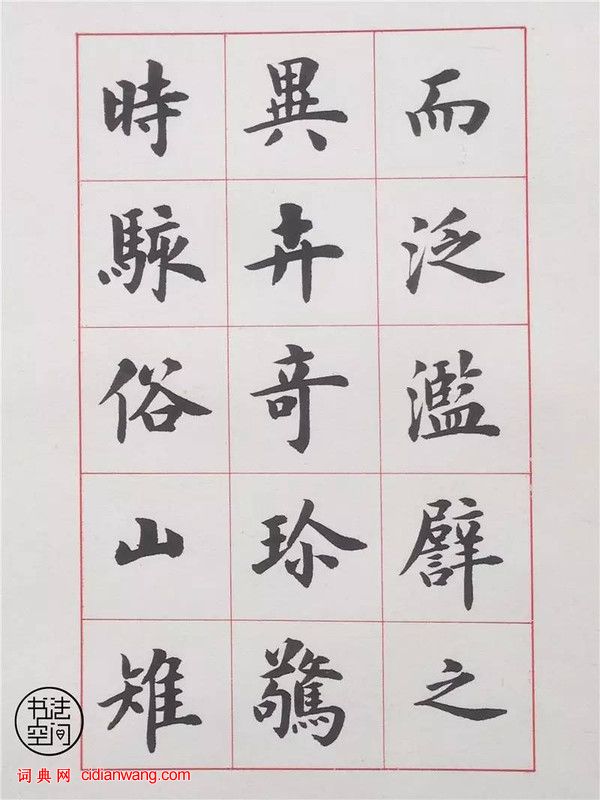 而泛濫譬之
異卉奇珎驚
時駭俗山雉
书法空间
词典网 cidianwang.com